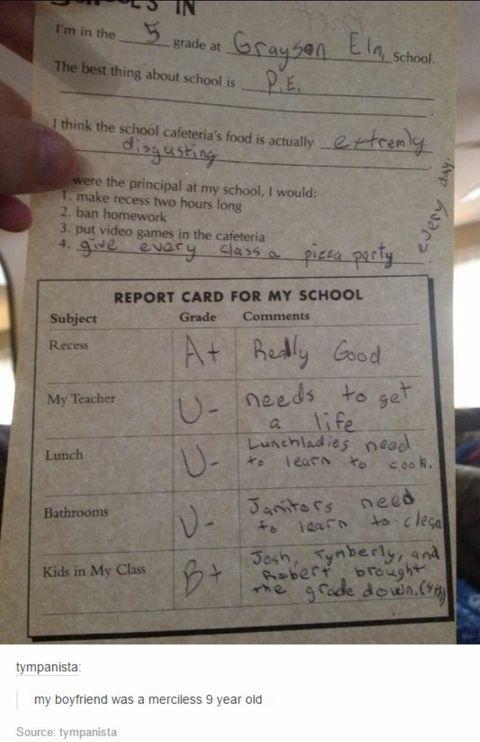 S IN
I'm in the 5 grade at Grayson Elm, School.
The best thing about school is P.E.
I think the school cafeteria's food is actually extremly
disgusting
were the principal at my school, I would:
1. make recess two hours long
2. ban homework
3. put video games in the cafeteria
4. give every class a pizza party every day.
REPORT CARD FOR MY SCHOOL
Subject Grade Comments
Recess A+ Really Good
My Teacher U- needs to get
a life
Lunch U- Lunchladies need
to learn to cook.
Bathrooms U- Janitors need
to learn to clean
Kids in My Class B+ Josh, Tymberly, and
Robert brought
the grade down.
tympanista:
my boyfriend was a merciless 9 year old
Source: tympanista